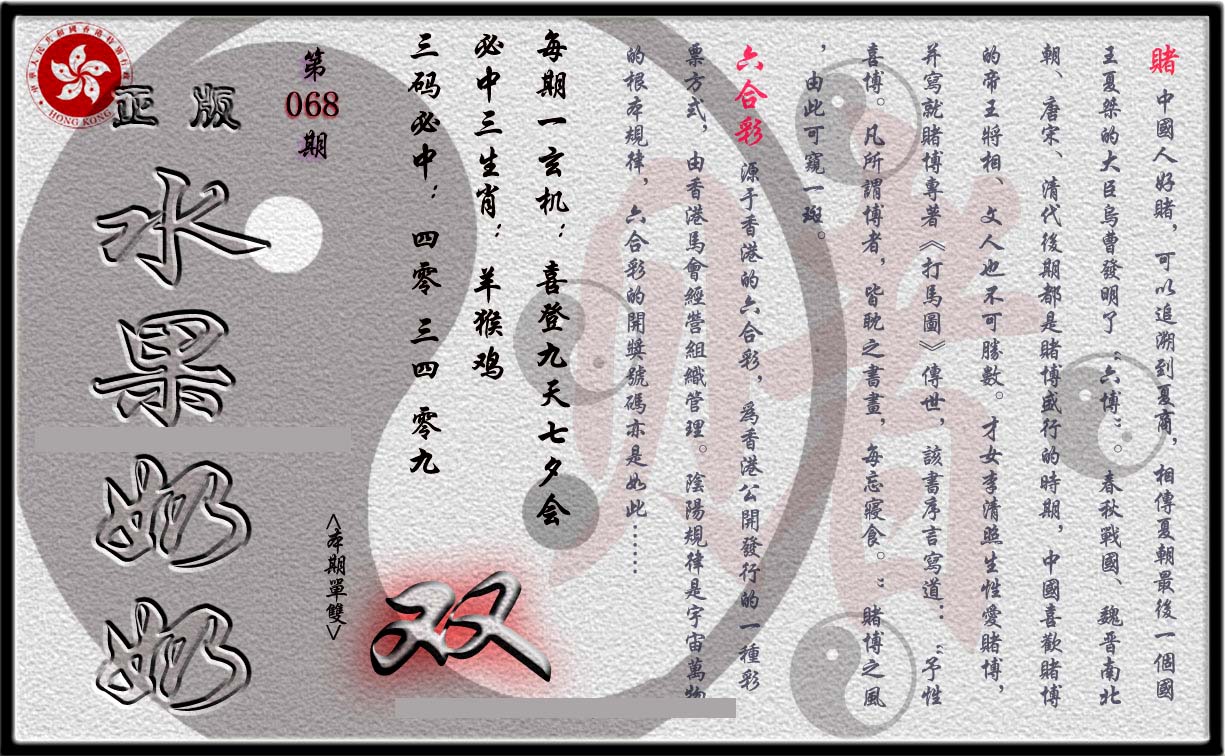 賭 中國人好賭，可以追溯到夏商，相傳夏朝最後一個國
王夏桀的大臣烏曹發明了“六博”。春秋戰國、魏晋南北
朝、唐宋、清代後期都是賭博盛行的時期，中國喜歡賭博
的帝王將相、文人也不可勝數。才女李清照生性愛賭博，
并寫就賭博專著《打馬圖》傳世，該書序言寫道：“予性
喜博。凡所謂博者，皆耽之書畫，每忘寢食。”賭博之風
，由此可窺一斑。
六合彩 源于香港的六合彩，爲香港公開發行的一種彩
票方式，由香港馬會經營組織管理。陰陽規律是宇宙萬物
的根本規律，六合彩的開獎號碼亦是如此……
賭
每期一玄机：喜登九天七夕会
必中三生肖：羊猴鸡
三码必中：四零 三四 零九
<本期單雙>
双
第
068
期
正版
水果奶奶
中華人民共和國香港特別行政區
HONG KONG